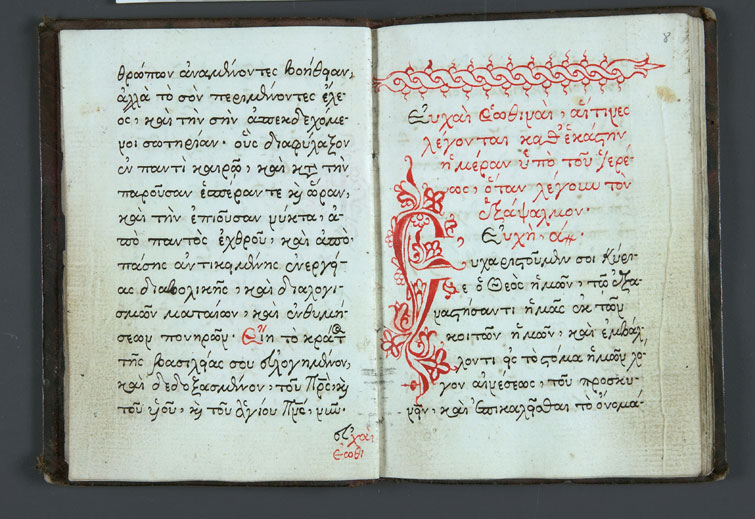 θρώπων ἀναμένοντες βοήθειαν,
ἀλλὰ τὸ σὸν περιμένοντες ἔλε-
ος, καὶ τὴν σὴν ἀπεκδεχόμε-
νοι σωτηρίαν. οὓς διαφύλαξον
ἐν παντὶ καιρῷ, καὶ κτ τὴν
παροῦσαν ἑσπέραν τε κ ὥραν,
καὶ τὴν ἐπιοῦσαν νύκτα, ἀ-
πὸ παντὸς ἐχθροῦ, καὶ ἀπὸ
πάσης ἀντικειμένης ἐνεργεί-
ας διαβολικῆς, καὶ διαλογι-
σμῶν ματαίων, καὶ ἐνθυμή-
σεων πονηρῶν. Εἴη τὸ κράτος
τῆς βασιλείας σου εὐλογημένον,
καὶ δεδοξασμένον, τοῦ Πρς, κ
τοῦ υἱοῦ, κ τοῦ ἁγίου Πνς, νῦν.
εὐχαὶ
ἑωθι
8
Εὐχαὶ Ἑωθιναὶ, αἵτινες
λέγονται καθ' ἑκάστην
ἡμέραν ὑπὸ τοῦ ἱερέ-
ως, ὅταν λέγουν τὸν
ἑξάψαλμον.
Εὐχὴ. αη.
Εὐχαριστοῦμέν σοι Κύρι-
ε ὁ Θεὸς ἡμῶν, τῷ ἐξα-
ναστήσαντι ἡμᾶς ἐκ τῶν
κοιτῶν ἡμῶν, καὶ ἐμβάλ-
λοντι εἰς τὸ στόμα ἡμῶν λό-
γον αἰνέσεως, τοῦ προσκυ-
νεῖν, καὶ ἐπικαλεῖσθαι τὸ ὄνομά-